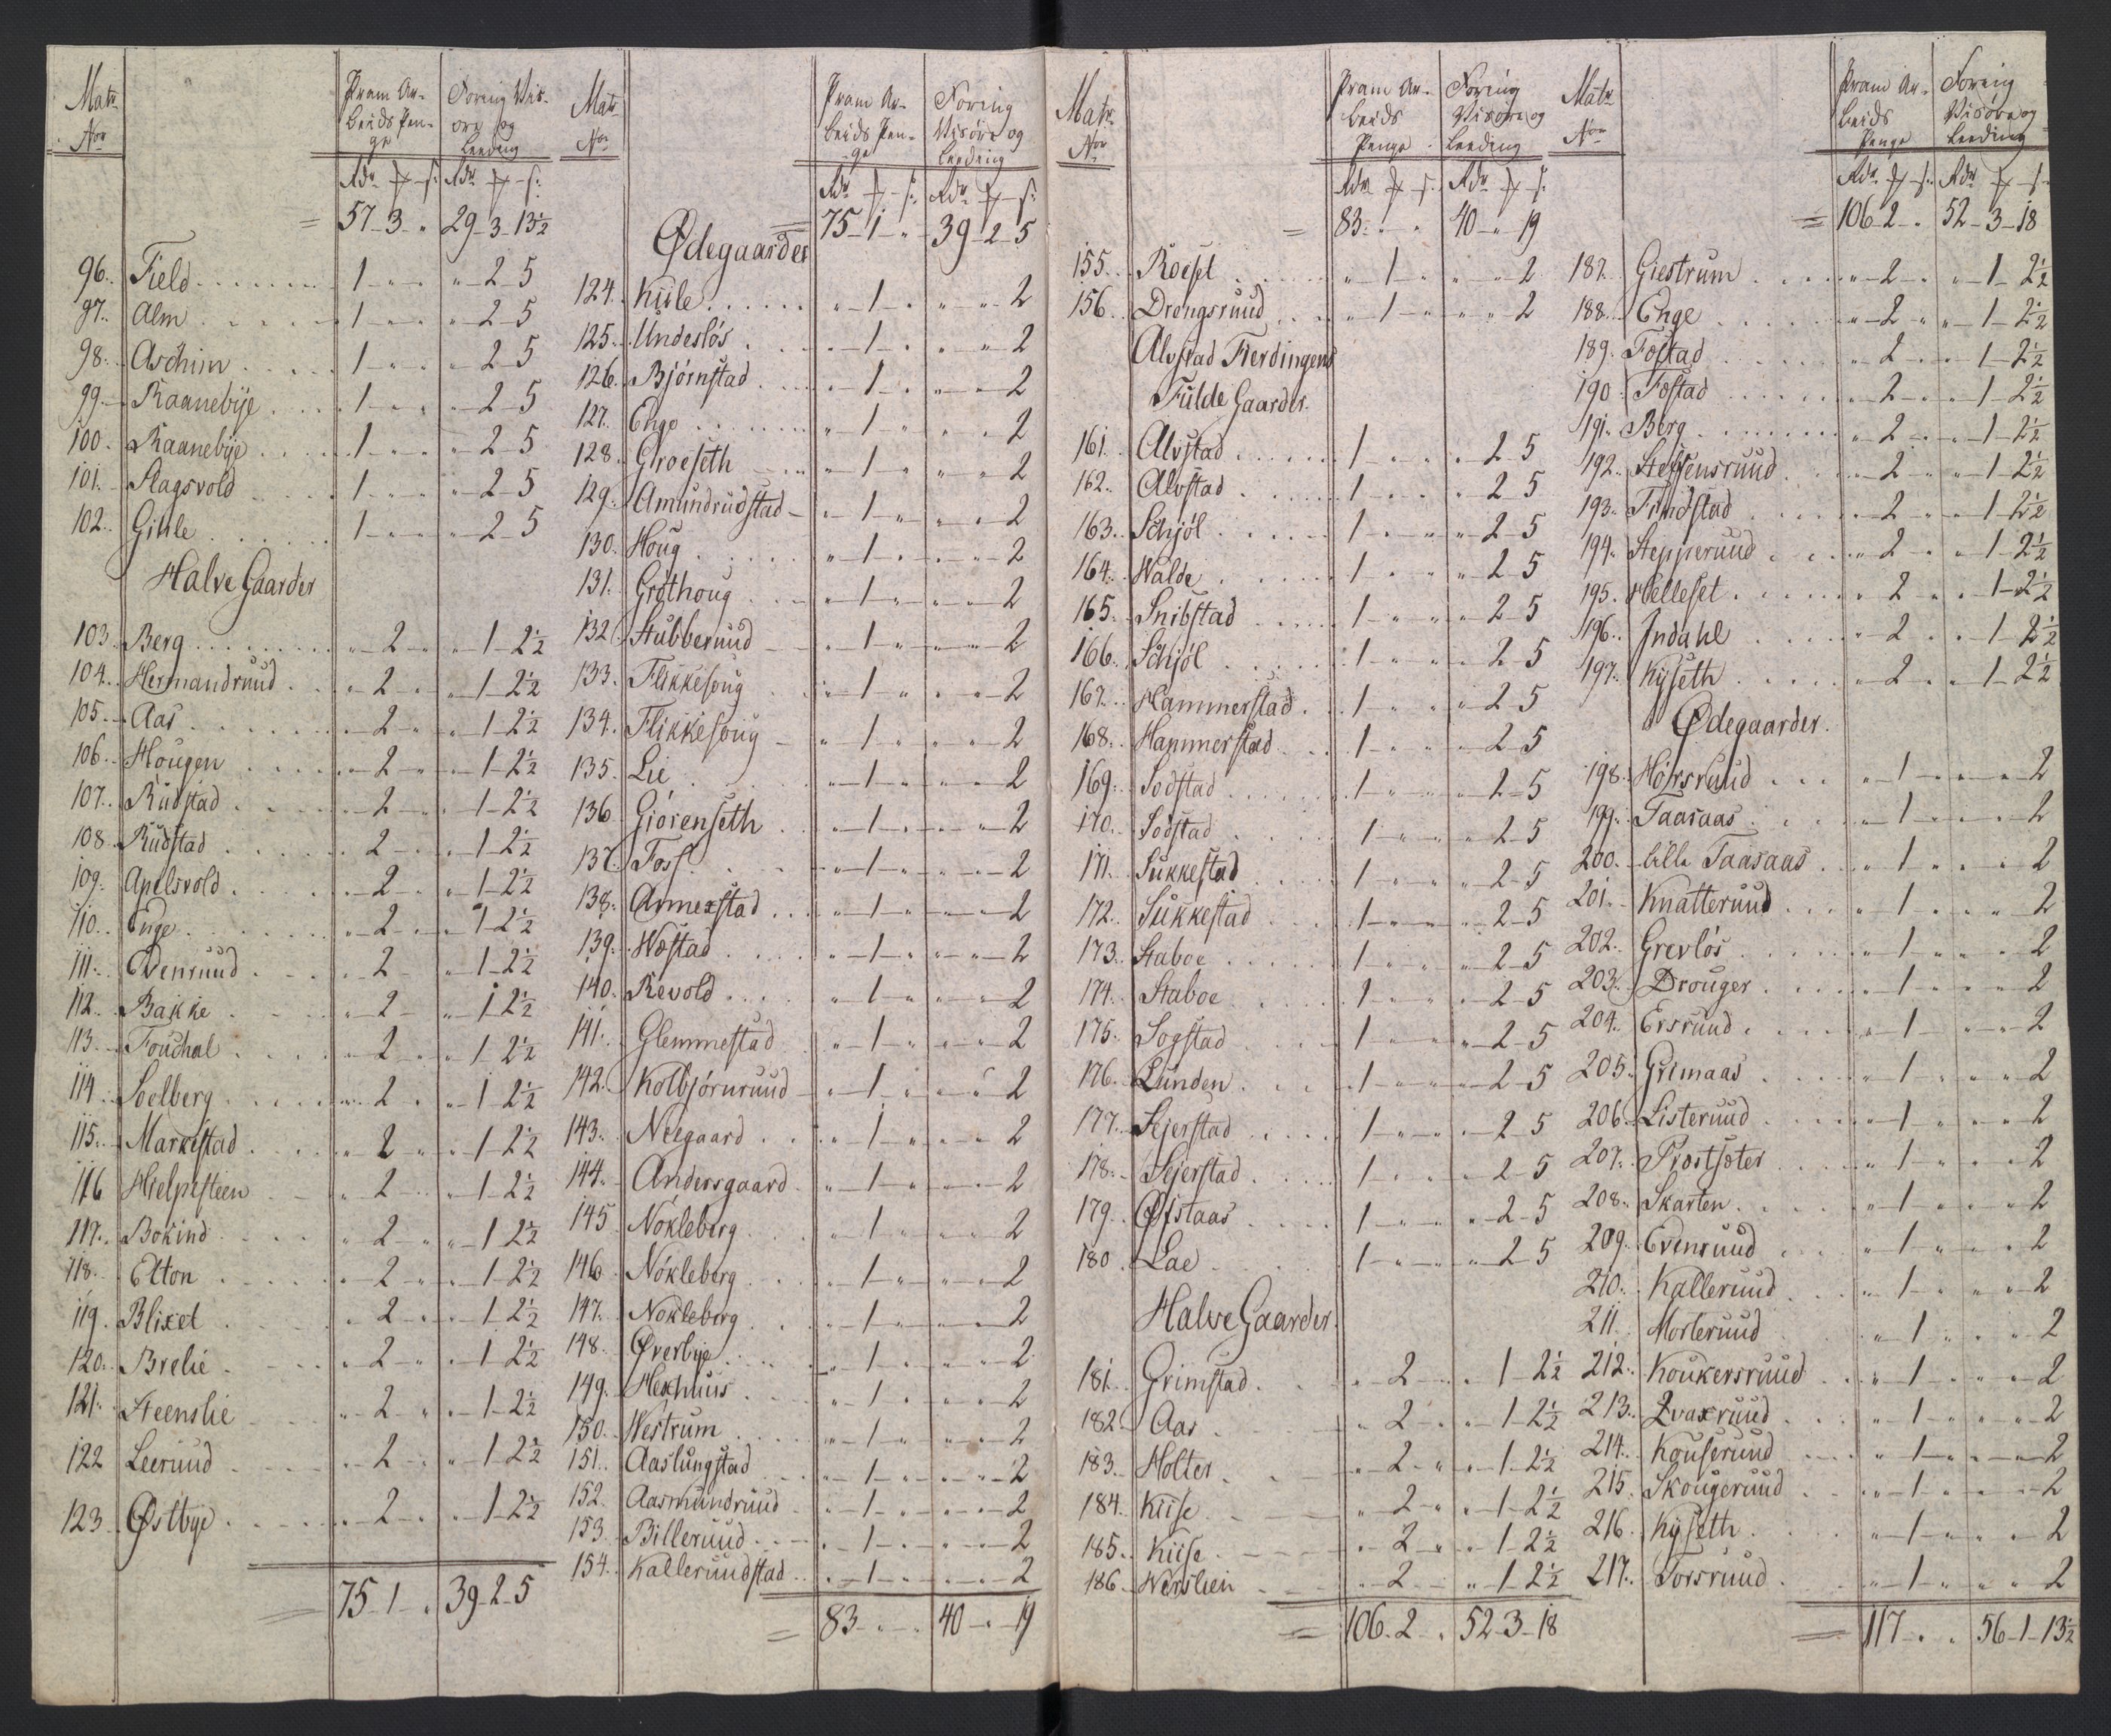 Matr. Nor | Pram Arbeids Penge | Foring Visøre og Leeding
Rdr ß | Rdr ß
= 57-3-" 29-3-13½
96. Field 1-"-" "-2-5
97. Alm 1-"-" "-2-5
98. Aschim 1-"-" "-2-5
99. Raanebÿe 1-"-" "-2-5
100. Raanebÿe 1-"-" "-2-5
101. Slagsvold 1-"-" "-2-5
102. Gihle 1-"-" "-2-5
Halve Gaarder
103. Berg "-2-" "-1-2½
104. Hermandruud "-2-" "-1-2½
105. Aas "-2-" "-1-2½
106. Hougen "-2-" "-1-2½
107. Rudstad "-2-" "-1-2½
108. Rudstad "-2-" "-1-2½
109. Apelsvold "-2-" "-1-2½
110. Enge "-2-" "-1-2½
111. Evenruud "-2-" "-1-2½
112. Bakke "-2-" "-1-2½
113. Foudhal "-2-" "-1-2½
114. Soelberg "-2-" "-1-2½
115. Markestad "-2-" "-1-2½
116 Hielpesteen "-2-" "-1-2½
117. Bokind "-2-" "-1-2½
118. Etton "-2-" "-1-2½
119. Blixet "-2-" "-1-2½
120. Brelie "-2-" "-1-2½
121. Steenslie "-2-" "-1-2½
122 Leeruud "-2-" "-1-2½
123. Østbye "-2-" "-1-2½
= 75-1-" 39-2-5
Matr. Nor | Pram Arbeids Penge | Foring Visøre og Leeding
Rdr ß | Rdr ß
= 75-1-" 39-2-5
Ødegaarder
124. Kiile "-1-" "-"-2
125. Undesløs "-1-" "-"-2
126. Bjørnstad "-1-" "-"-2
127. Enge "-1-" "-"-2
128. Groeseth "-1-" "-"-2
129. Amundrudstad "-1-" "-"-2
130. Houg "-1-" "-"-2
131. Grøthoug "-1-" "-"-2
132. Stubberuud "-1-" "-"-2
133. Flikkesoug "-1-" "-"-2
134. Flikkesoug "-1-" "-"-2
135. Lie "-1-" "-"-2
136 Giørenseth "-1-" "-"-2
137. Foss "-1-" "-"-2
138. Annexstad "-1-" "-"-2
139. Wøstad "-1-" "-"-2
140. Revold "-1-" "-"-2
141. Glemmestad "-1-" "-"-2
142. Kolbjørnruud "-1-" "-"-2
143. Neegaard "-1-" "-"-2
144. Andersgaard "-1-" "-"-2
145 Nøkleberg "-1-" "-"-2
146 Nøkleberg "-1-" "-"-2
147. Nøkleberg "-1-" "-"-2
148. Øverbye "-1-" "-"-2
149. Hexhuus "-1-" "-"-2
150. Westrum "-1-" "-"-2
151. Aaslungstad "-1-" "-"-2
152. Aasmundruud "-1-" "-"-2
153 Billeruud "-1-" "-"-2
154. Kalleruudstad "-1-" "-"-2
= 83-"-" 40-"-19
Matr. Nor | Pram Arbeids Penge | Foring Visøre og Leeding
Rdr ß | Rdr ß
= 83-"-" 40-"-19
155. Roesel "-1-" "-"-2
156. Drengsruud "-1-" "-"-2
Alvstad Fierdingens
Fulde Gaarder.
161. Alvstad 1-"-" "-2-5
162. Alvstad 1-"-" "-2-5
163. Schjøl 1-"-" "-2-5
164. Walde 1-"-" "-2-5
165. Snibstad 1-"-" "-2-5
166. Schjøl 1-"-" "-2-5
167. Hammerstad 1-"-" "-2-5
168. Hammerstad 1-"-" "-2-5
169. Sodstad 1-"-" "-2-5
170. Sodstad 1-"-" "-2-5
171. Sukkestad 1-"-" "-2-5
172. Sukkestad 1-"-" "-2-5
173. Staboe 1-"-" "-2-5
174. Staboe 1-"-" "-2-5
175. Sogstad 1-"-" "-2-5
176. Lunden 1-"-" "-2-5
177. Sejerstad 1-"-" "-2-5
178. Sejerstad 1-"-" "-2-5
179. Øistaas 1-"-" "-2-5
180. Lae 1-"-" "-2-5
Halve Gaarder.
181. Grimstad "-2-" "-1-2½
182. Aas "-2-" "-1-2½
183. Holter "-2-" "-1-2½
184. Kiise "-2-" "-1-2½
185. Kiise "-2-" "-1-2½
186. Werslien "-2-" "-1-2½
= 106-2-" 52-3-18
Matr. Nor | Pram Arbeids Penge | Foring Visøre og Leeding
Rdr ß | Rdr ß
= 106-2-" 52-3-18
187. Giestrum "-2-" "-1-2½
188. Enge "-2-" "-1-2½
189. Fostad "-2-" "-1-2½
190. Fostad "-2-" "-1-2½
191. Berg "-2-" "-1-2½
192. Steffensruud "-2-" "-1-2½
193. Findstad "-2-" "-1-2½
194. Stepperuud "-2-" "-1-2½
195. Helleset "-2-" "-1-2½
196. Indahl "-2-" "-1-2½
197. Kyseth "-2-" "-1-2½
Ødegaarder.
198. Hørsruud "-1-" "-"-2
199. Taasaas "-1-" "-"-2
200. lille Taasaas "-1-" "-"-2
201. Knatteruud "-1-" "-"-2
202. Grevløs "-1-" "-"-2
203. Drouger "-1-" "-"-2
204. Ersruud "-1-" "-"-2
205. Grimaas "-1-" "-"-2
206. Listeruud "-1-" "-"-2
207. Prostsøter "-1-" "-"-2
208. Skarten "-1-" "-"-2
209. Evenruud "-1-" "-"-2
210. Kalleruud "-1-" "-"-2
211. Morteruud "-1-" "-"-2
212. Koukersruud "-1-" "-"-2
213. Qvaxruud "-1-" "-"-2
214. Kouseruud "-1-" "-"-2
215. Skougeruud "-1-" "-"-2
216. Kyseth "-1-" "-"-2
217. Torsruud "-1-" "-"-2
= 117-"-" 56-1-13½